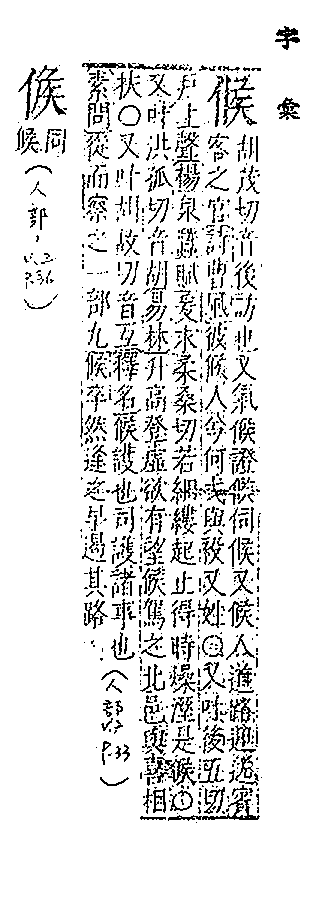 字彙
候 胡茂切音後訪也又氣候證候伺候又候人道路迎送賓
客之官詩曹風彼候人兮何戈與祋又姓○又叶後五切
戸上聲楊泉蠶賦爰求柔桑切若網縷起止得時燥溼是候○
又叶洪孤切音胡易林升高登虛欲有望候駕之北邑與喜相
扶○又叶胡故切音互釋名候護也司護諸事也(人部 P.33)
素問從而察之一部九候卒然逢之早遏其路
𠋫 同候(人部, P.36)